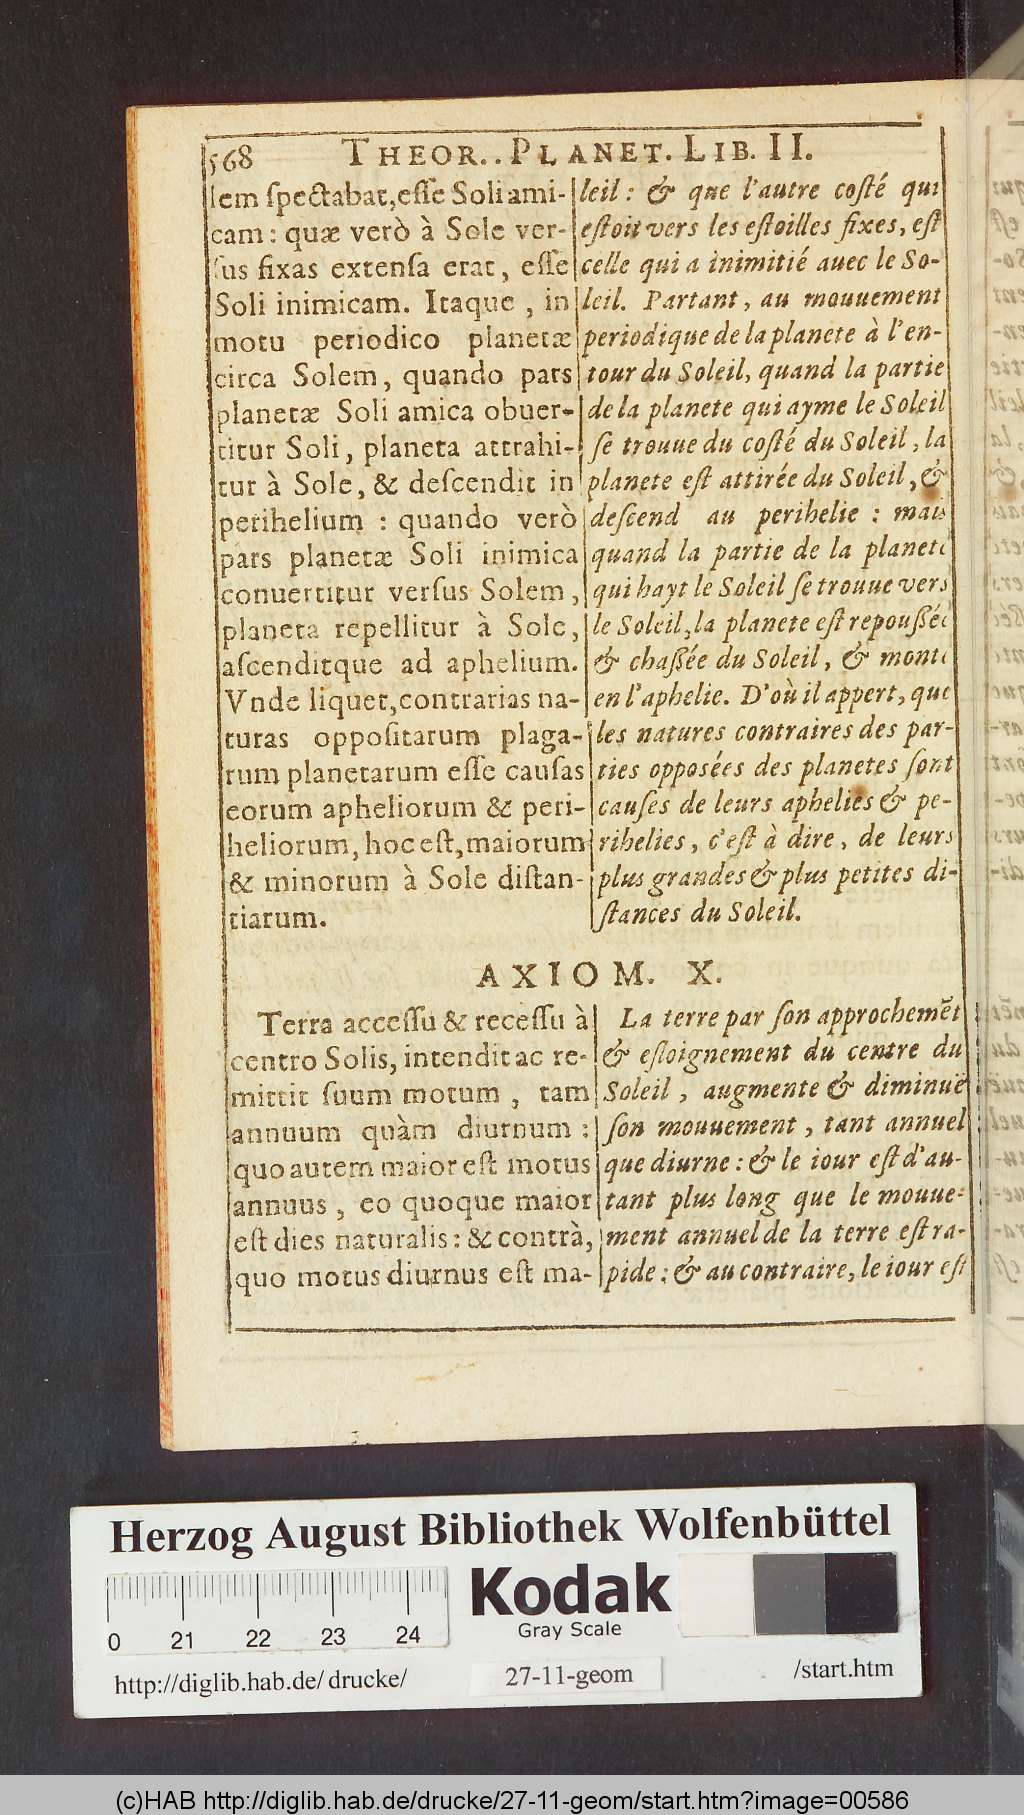 568 THEOR. PLANET. LIB. II.
lem spectabat, esse Soli ami-
cam: quæ verò à Sole ver-
sus fixas extensa erat, esse
Soli inimicam. Itaque, in
motu periodico planetæ
circa Solem, quando pars
planetæ Soli amica obuer-
titur Soli, planeta attrahi-
tur à Sole, & descendit in
perihelium: quando verò
pars planetæ Soli inimica
conuertitur versus Solem,
planeta repellitur à Sole,
ascenditque ad aphelium.
Vnde liquet, contrarias na-
turas oppositarum plaga-
rum planetarum esse causas
eorum apheliorum & peri-
heliorum, hoc est, maiorum
& minorum à Sole distan-
tiarum.
leil: & que l'autre costé qui
estoit vers les estoilles fixes, est
celle qui a inimitié auec le So-
leil. Partant, au mouuement
periodique de la planete à l'en-
tour du Soleil, quand la partie
de la planete qui ayme le Soleil
se trouue du costé du Soleil, la
planete est attirée du Soleil, &
descend au perihelie: mais
quand la partie de la planete
qui hayt le Soleil se trouue vers
le Soleil, la planete est repoussée
& chassée du Soleil, & monte
en l'aphelie. D'où il appert, que
les natures contraires des par-
ties opposées des planetes sont
causes de leurs aphelies & pe-
rihelies, c'est à dire, de leurs
plus grandes & plus petites di-
stances du Soleil.
AXIOM. X.
Terra accessu & recessu à
centro Solis, intendit ac re-
mittit suum motum, tam
annuum quàm diurnum:
quo autem maior est motus
annuus, eo quoque maior
est dies naturalis: & contrà,
quo motus diurnus est ma-
La terre par son approchemẽt
& esloignement du centre du
Soleil, augmente & diminuë
son mouuement, tant annuel
que diurne: & le iour est d'au-
tant plus long que le mouue-
ment annuel de la terre est ra-
pide: & au contraire, le iour est
Herzog August Bibliothek Wolfenbüttel
Kodak
Gray Scale
0 21 22 23 24
http://diglib.hab.de/drucke/ 27-11-geom /start.htm
(c)HAB http://diglib.hab.de/drucke/27-11-geom/start.htm?image=00586